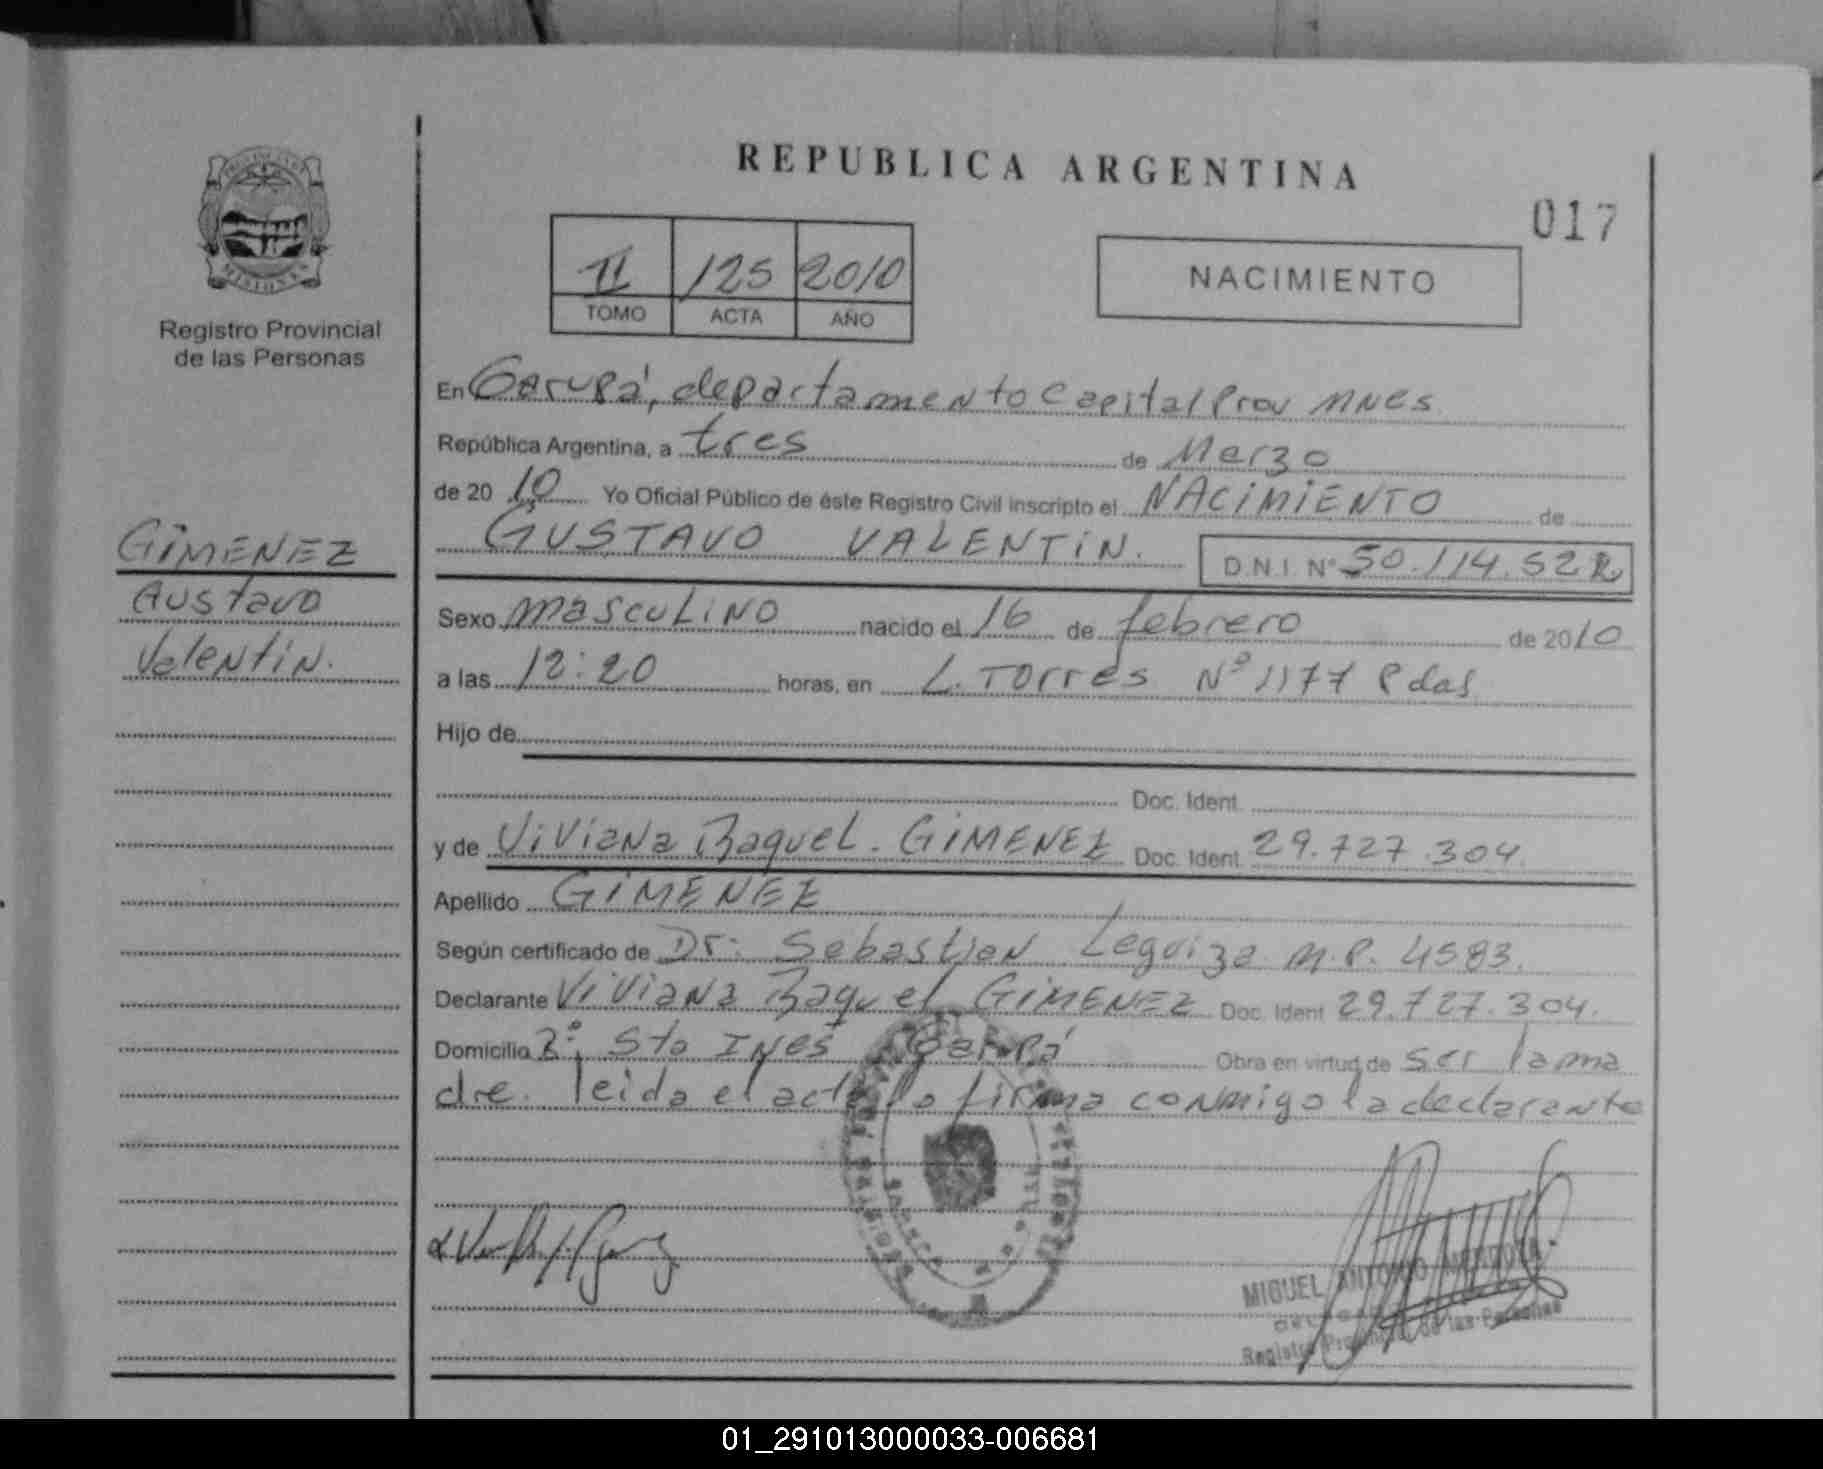 REPUBLICA ARGENTINA
017
PROVINCIA DE
MISIONES
Registro Provincial
de las Personas
II 125 2010
TOMO ACTA AÑO
NACIMIENTO
En Garupá, departamento Capital Prov Mnes
República Argentina, a tres de Marzo
de 20 10 Yo Oficial Público de éste Registro Civil inscripto el NACIMIENTO de
GUSTAVO VALENTIN. D.N.I. Nº 50.114.522
GIMENEZ
Gustavo
Valentin.
Sexo masculino nacido el 16 de febrero de 2010
a las 12:20 horas, en L. Torres Nº 1177 Pdas
Hijo de
Doc. Ident.
y de Viviana Raquel. GIMENEZ Doc. Ident. 29.727.304.
Apellido GIMENEZ
Según certificado de Dr: Sebastian Leguiza M.P. 4583.
Declarante Viviana Raquel GIMENEZ Doc. Ident 29.727.304.
Domicilio Bº Sta Ines Garupá Obra en virtud de ser la ma
dre. leida el acta la firma conmigo la declarante
MIGUEL ANTONIO MENDOZA
Registro Provincial de las Personas
01_291013000033-006681